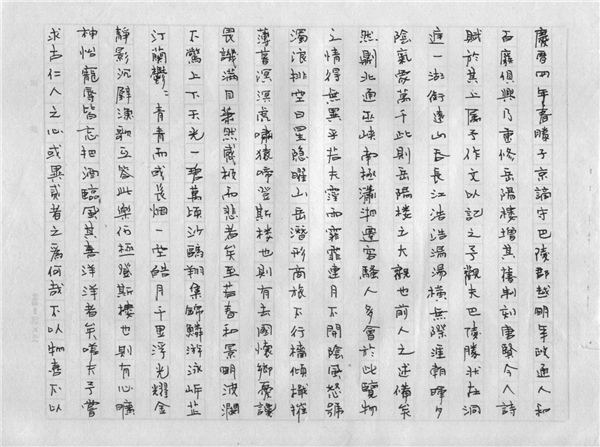 慶曆四年春滕子京謫守巴陵郡越明年政通人和
百廢俱興乃重修岳陽樓增其舊制刻唐賢今人詩
賦於其上屬予作文以記之予觀夫巴陵勝狀在洞
庭一湖銜遠山吞長江浩浩湯湯橫無際涯朝暉夕
陰氣象萬千此則岳陽樓之大觀也前人之述備矣
然則北通巫峽南極瀟湘遷客騷人多會於此覽物
之情得無異乎若夫霪雨霏霏連月不開陰風怒號
濁浪排空日星隱曜山岳潛形商旅不行檣傾楫摧
薄暮溟溟虎嘯猿啼登斯樓也則有去國懷鄉憂讒
畏譏滿目蕭然感極而悲者矣至若春和景明波瀾
不驚上下天光一碧萬頃沙鷗翔集錦鱗游泳岸芷
汀蘭鬱〻青青而或長烟一空皓月千里浮光耀金
靜影沉璧漁歌互答此樂何極登斯樓也則有心曠
神怡寵辱皆忘把酒臨風其喜洋洋者矣嗟夫予嘗
求古仁人之心或異貳者之爲何哉不以物喜不以